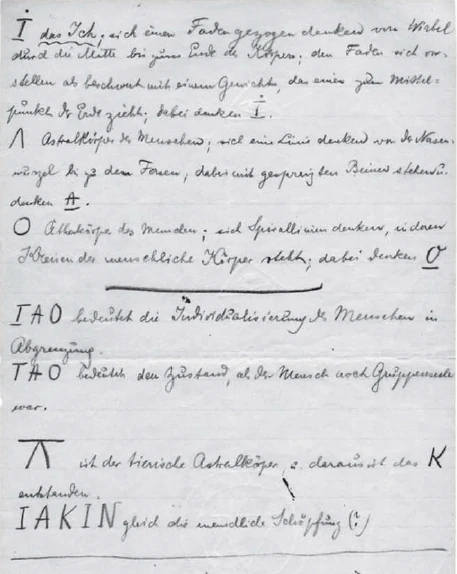 I das Ich; sich einen Faden gezogen denken vom Wirbel
durch die Mitte bis zum Ende des Körpers; den Faden sich vor-
stellen als beschwert mit einem Gewicht, das einen zum Mittel=
punkt der Erde zieht; dabei denken I.
Λ Astralkörper des Menschen; sich eine Linie denken von der Nasen-
wurzel bis zu den Füssen, dabei mit gespreizten Beinen stehen u.
denken A.
O Ätherkörper des Menschen; sich Spirallinien denken, in deren
Kreisen der menschliche Körper steht; dabei denken O
IAO bedeutet die Individualisierung des Menschen in
Abgrenzung.
TAO bedeutet den Zustand, als der Mensch noch Gruppenseele
war.
ist der tierische Astralkörper, daraus ist das K
entstanden.
IAKIN gleich die menschliche Schöpfung (?)